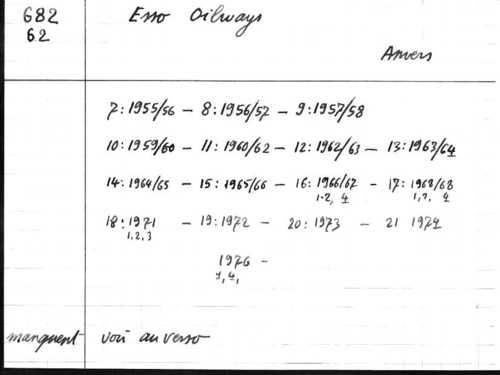 682 Esso Oilways
62
Anvers
7: 1955/56 – 8: 1956/57 – 9: 1957/58
10: 1959/60 – 11: 1960/62 – 12: 1962/63 – 13: 1963/64
14: 1964/65 – 15: 1965/66 – 16: 1966/67 – 17: 1968/68
1-2, 4
18: 1971 – 19: 1972 – 20: 1973 – 21 1974
1, 2, 3
1976 –
manquent voir au verso